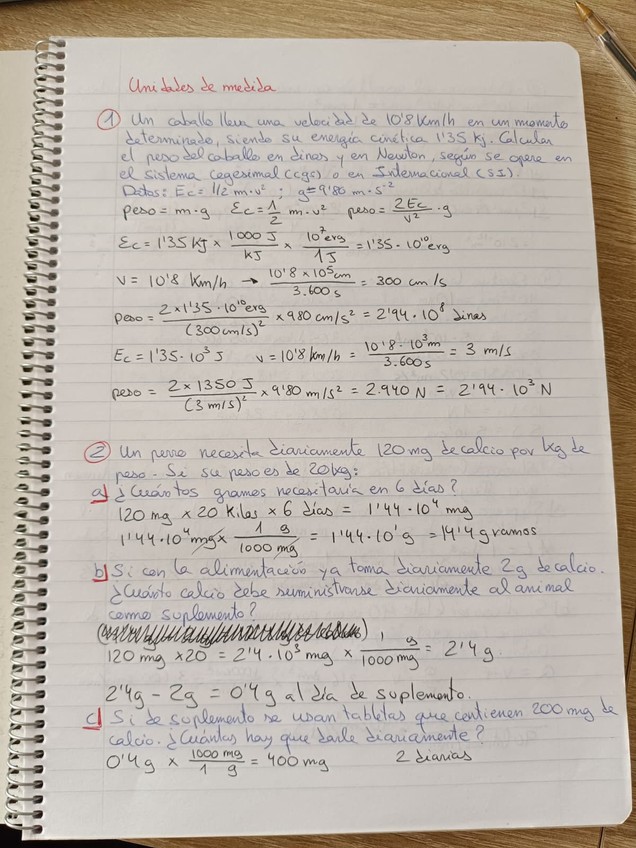 Unidades de medida
① Un caballo lleva una velocidad de 10'8 Km/h en un momento
determinado, siendo su energía cinética 1'35 Kj. Calcular
el peso del caballo en dinas y en Newton, según se opere en
el sistema cegesimal (cgs) o en Internacional (SI).
Datos: Ec = 1/2 m·v² ; g = 9'80 m·s⁻²
peso = m·g Ec = 1/2 m·v² peso = 2Ec/v² · g
Ec = 1'35 KJ × 1000 J/KJ × 10⁷ erg/1 J = 1'35 · 10¹⁰ erg
v = 10'8 Km/h → 10'8 × 10⁵ cm/3.600 s = 300 cm/s
peso = 2 × 1'35 · 10¹⁰ erg/(300 cm/s)² × 980 cm/s² = 2'94 · 10⁸ dinas
Ec = 1'35 · 10³ J v = 10'8 km/h = 10'8 · 10³ m/3.600 s = 3 m/s
peso = 2 × 1350 J/(3 m/s)² × 9'80 m/s² = 2.940 N = 2'94 · 10³ N
② Un perro necesita diariamente 120 mg de calcio por kg de
peso. Si su peso es de 20 kg:
a) ¿Cuántos gramos necesitaría en 6 días?
120 mg × 20 Kilos × 6 días = 1'44 · 10⁴ mg
1'44 · 10⁴ mg × 1 g/1000 mg = 1'44 · 10¹ g = 14'4 gramos
b) Si con la alimentación ya toma diariamente 2g de calcio.
¿Cuánto calcio debe suministrarse diariamente al animal
como suplemento?
120 mg × 20 = 2'4 · 10³ mg × 1 g/1000 mg = 2'4 g.
2'4g - 2g = 0'4g al día de suplemento.
c) Si de suplemento se usan tabletas que contienen 200 mg de
calcio. ¿Cuántas hay que darle diariamente?
0'4 g × 1000 mg/1 g = 400 mg 2 diarias